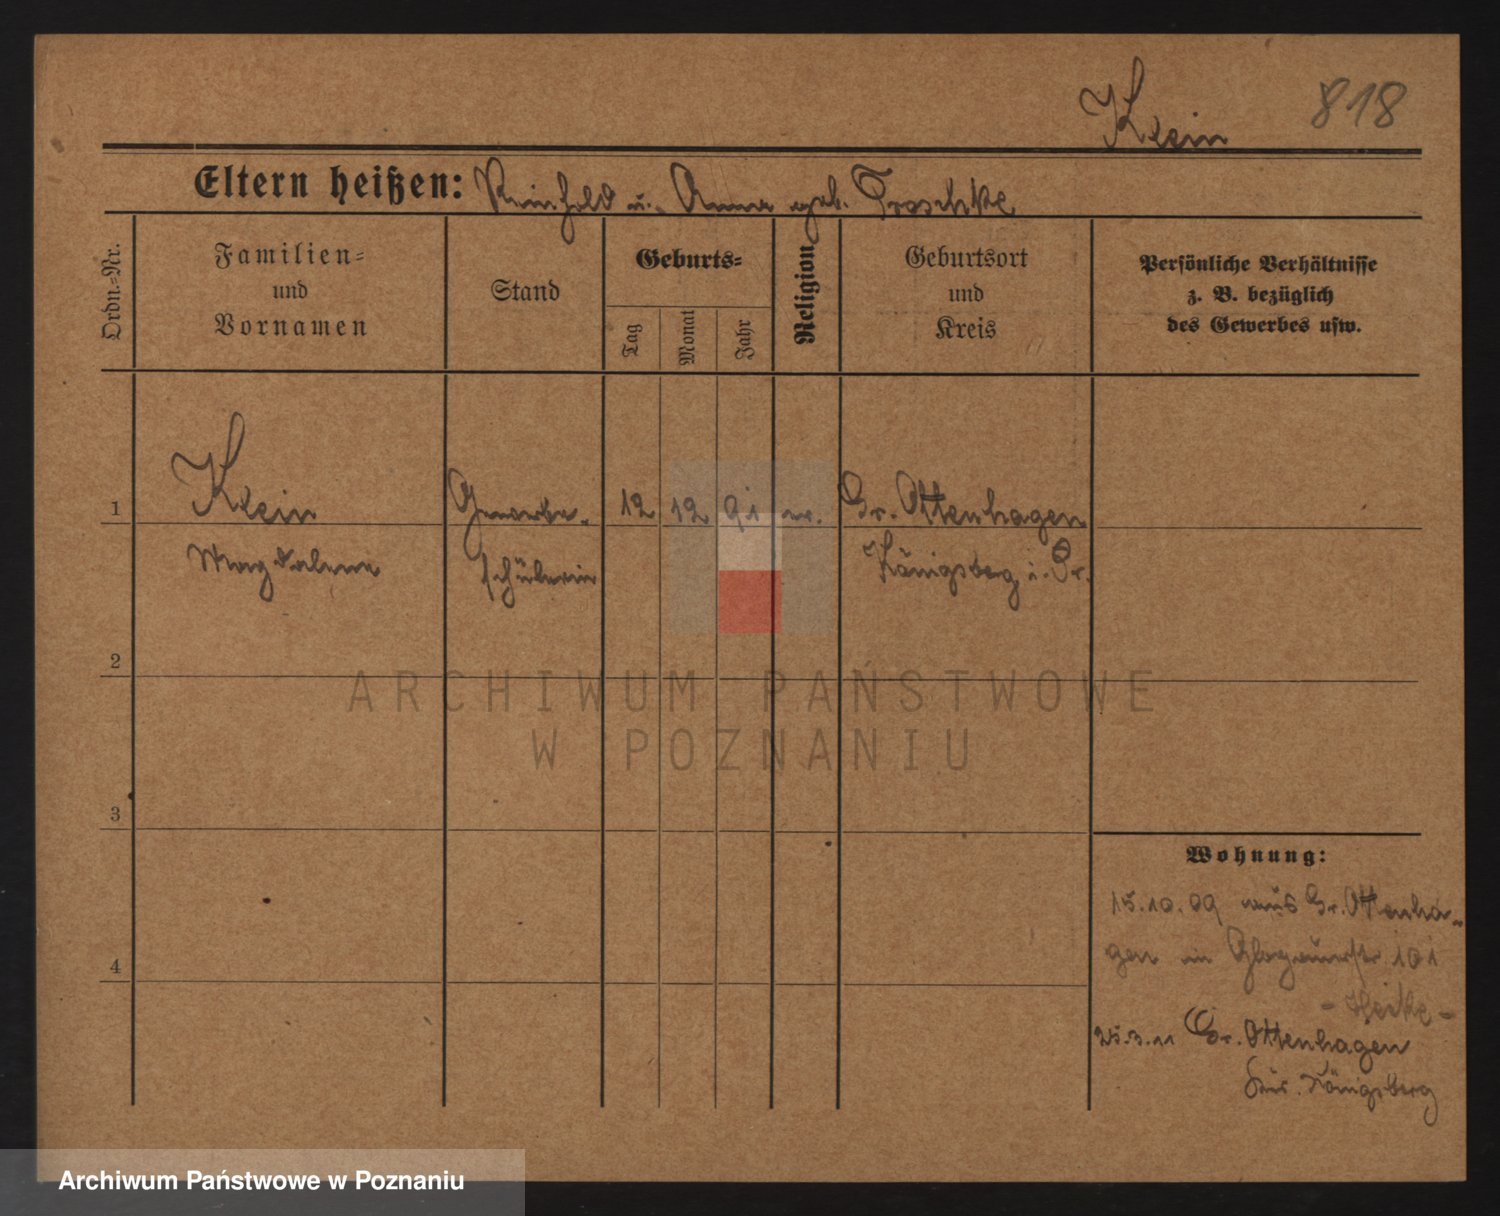 Klein 818
Eltern heißen: Reinhold u. Anna geb. Troschke
Ordn.-Nr.
Familien-
und
Vornamen
Stand
Geburts-
Tag
Monat
Jahr
Religion
Geburtsort
und
Kreis
Persönliche Verhältnisse
z. B. bezüglich
des Gewerbes usw.
1 Klein Gewerbe- 12 12 91 ev. Gr. Ottenhagen
Magdalene schülerin Königsberg i. Pr.
2
3
4
Wohnung:
15.10.09 aus Gr. Ottenha-
gen in Glogauerstr. 101
25.3.11 Gr. Ottenhagen
Krs. Königsberg
ARCHIWUM PAŃSTWOWE
W POZNANIU
Archiwum Państwowe w Poznaniu